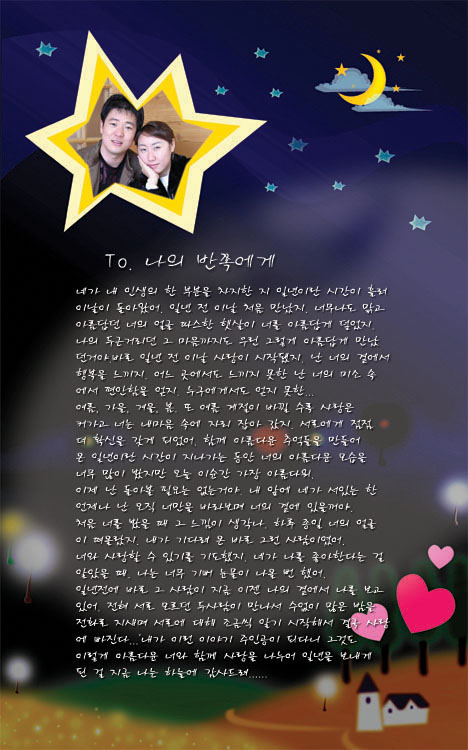 To. 나의 반쪽에게
네가 내 인생의 한 부분을 차지한 지 일년이란 시간이 흘러
이날이 돌아왔어. 일년 전 이날 처음 만났지. 너무나도 맑고
아름답던 너의 얼굴 따스한 햇살이 너를 아름답게 덮었지.
나의 두근거리던 그 마음까지도 우린 그렇게 아름답게 만났
던거야 바로 일년 전 이날 사랑이 시작됐지. 난 너의 곁에서
행복을 느끼지. 어느 곳에서도 느끼지 못한 난 너의 미소 속
에서 편안함을 얻지. 누구에게서도 얻지 못한...
여름, 가을, 겨울, 봄, 또 여름 계절이 바뀔 수록 사랑은
커가고 너는 내마음 속에 자리 잡아 갔지. 서로에게 점점
더 확신을 갖게 되었어. 함께 아름다운 추억들을 만들어
온 일년이란 시간이 지나가는 동안 너의 아름다운 모습을
너무 많이 봤지만 오늘 이순간 가장 아름다워.
이제 난 돌아볼 필요는 없는거야. 내 앞에 네가 서있는 한
언제나 난 오직 너만을 바라보며 너의 곁에 있을꺼야.
처음 너를 봤을 때 그 느낌이 생각나. 하루 종일 너의 얼굴
이 떠올랐지. 내가 기다려 온 바로 그런 사랑이었어.
너와 사랑할 수 있기를 기도했지. 네가 나를 좋아한다는 걸
알았을 때, 나는 너무 기뻐 눈물이 나올 뻔 했어.
일년전에 바로 그 사랑이 지금 이젠 나의 곁에서 나를 보고
있어. 전혀 서로 모르던 두사람이 만나서 수없이 많은 밤을
전화로 지새며 서로에 대해 조금씩 알기 시작해서 결국 사랑
에 빠진다...'내가 이런 이야기 주인공이 되다니 그것도
이렇게 아름다운 너와 함께 사랑을 나누어 일년을 보내게
된 걸 지금 나는 하늘에 감사드려......